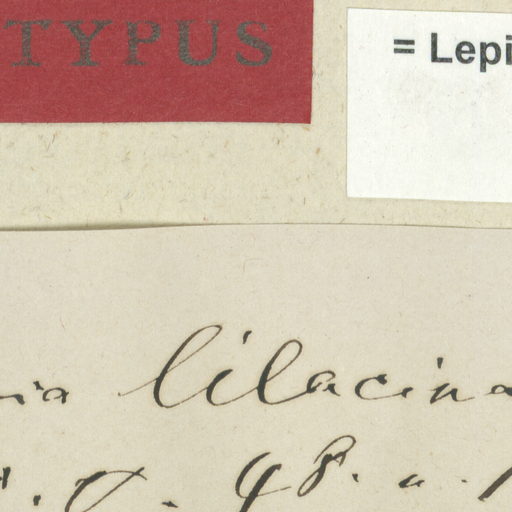 TYPUS
= Lepi
ia lilacina
48.